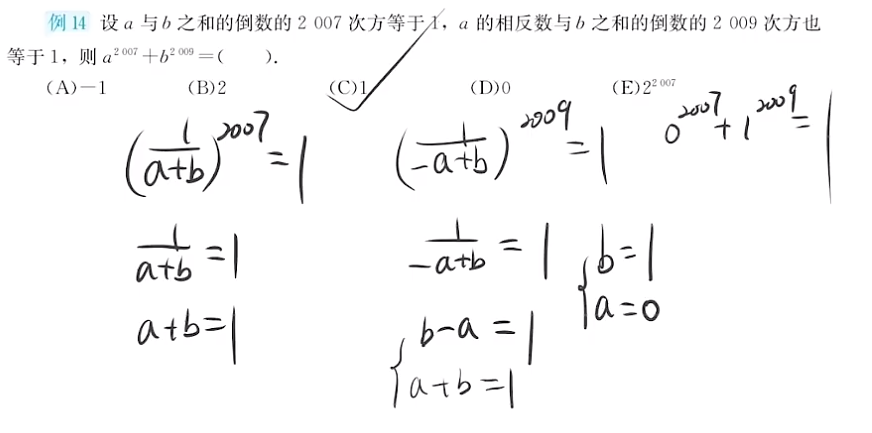 例 14 设 a 与 b 之和的倒数的 2 007 次方等于 1，a 的相反数与 b 之和的倒数的 2 009 次方也
等于 1，则 a^{2 007}+b^{2 009}=(　　).
(A)−1 (B)2 (C)1 (D)0 (E)2^{2 007}
(1/(a+b))^{2007}=1 (1/(-a+b))^{2009}=1 0^{2007}+1^{2009}=1
1/(a+b)=1 1/(-a+b)=1 { b=1
a+b=1 a=0
{ b-a=1
a+b=1